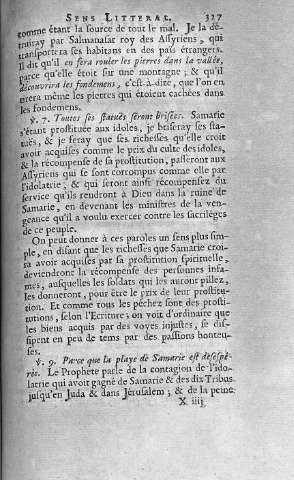 SENS LITTERAL. 327
comme étant la source de tout le mal. Je la dé-
truiray par Salmanasar roy des Assyriens, qui
transportera ses habitans en des païs étrangers.
Il dit qu'il en fera rouler les pierres dans la vallée,
parce qu'elle étoit sur une montagne; & qu'il
découvrira les fondemens, c'est-à-dire, que l'on en
tirera même les pierres qui étoient cachées dans
les fondemens.
℣. 7. Toutes ses statuës seront brisées. Samarie
s'étant prostituée aux idoles, je briseray ses sta-
tuës, & je feray que ses richesses qu'elle croit
avoir acquises comme le prix du culte des idoles,
& la récompense de sa prostitution, passeront aux
Assyriens qui se sont corrompus comme elle par
l'idolatrie, & qui seront ainsi récompensez du
service qu'ils rendront à Dieu dans la ruine de
Samarie, en devenant les ministres de la ven-
geance qu'il a voulu exercer contre les sacrilèges
de ce peuple.
On peut donner à ces paroles un sens plus sim-
ple, en disant que les richesses que Samarie croi-
ra avoir acquises par sa prostitution spirituelle,
deviendront la récompense des personnes infa-
mes, ausquelles les soldats qui les auront pillez,
les donneront, pour être le prix de leur prostitu-
tion. Et comme tous les péchez sont des prosti-
tutions, selon l'Ecriture; on voit d'ordinaire que
les biens acquis par des voyes injustes, se dis-
sipent en peu de tems par des passions honteu-
ses.
℣. 9. Parce que la playe de Samarie est desespe-
rée. Le Prophete parle de la contagion de l'ido-
latrie qui avoit gagné de Samarie & des dix Tribus
jusqu'en Juda & dans Jérusalem; & de la peine
X iiij